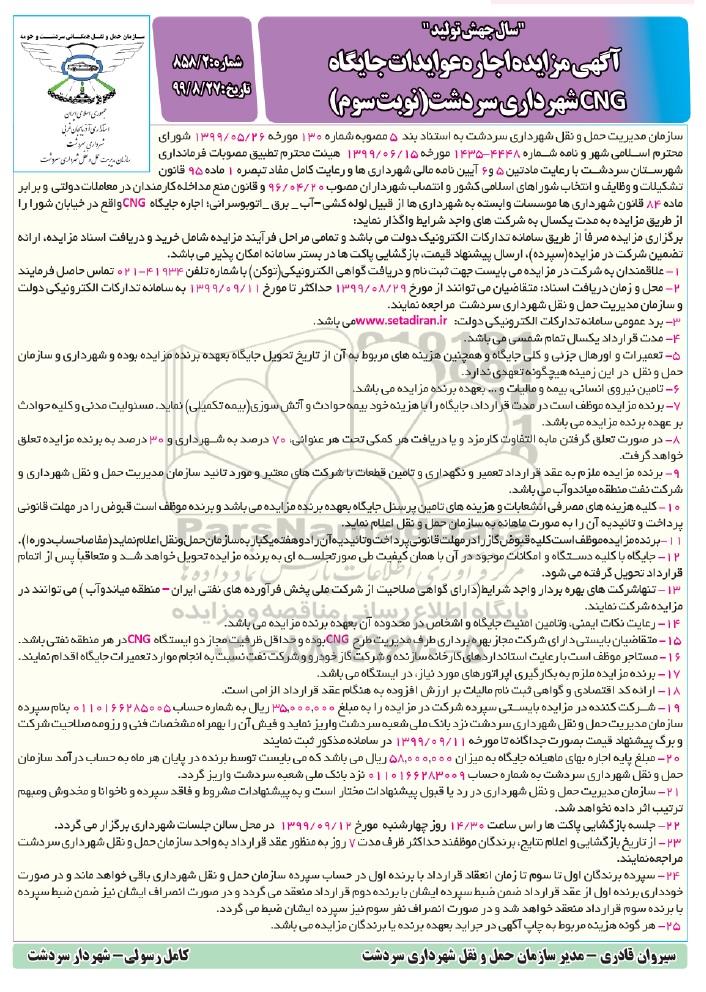 "سال جهش تولید"
آگهی مزایده اجاره عوایدات جایگاه
CNG شهرداری سردشت (نوبت سوم)
شماره: ۸۵۸/۲
تاریخ: ۹۹/۸/۲۷
سازمان حمل و نقل همگانی سردشت و حومه
جمهوری اسلامی ایران
استانداری آذربایجان غربی
شهرداری سردشت
سازمان مدیریت حمل و نقل شهرداری سردشت
سازمان مدیریت حمل و نقل شهرداری سردشت به استناد بند ۵ مصوبه شماره ۱۳۰ مورخه ۱۳۹۹/۰۵/۲۶ شورای
محترم اسلامی شهر و نامه شماره ۴۴۴۸-۱۴۳۵ مورخه ۱۳۹۹/۰۶/۱۵ هیئت محترم تطبیق مصوبات فرمانداری
شهرستان سردشت با رعایت مادتین ۵ و ۶ آیین نامه مالی شهرداری ها و رعایت کامل مفاد تبصره ۱ ماده ۹۵ قانون
تشکیلات و وظایف و انتخاب شوراهای اسلامی کشور و انتصاب شهرداران مصوب ۹۶/۰۴/۲۰ و قانون منع مداخله کارمندان در معاملات دولتی و برابر
ماده ۸۴ قانون شهرداری ها موسسات وابسته به شهرداری ها از قبیل لوله کشی - آب _ برق _ اتوبوسرانی؛ اجاره جایگاه CNG واقع در خیابان شورا را
از طریق مزایده به مدت یکسال به شرکت های واجد شرایط واگذار نماید:
برگزاری مزایده صرفاً از طریق سامانه تدارکات الکترونیک دولت می باشد و تمامی مراحل فرآیند مزایده شامل خرید و دریافت اسناد مزایده، ارائه
تضمین شرکت در مزایده (سپرده)، ارسال پیشنهاد قیمت، بازگشایی پاکت ها در بستر سامانه امکان پذیر می باشد.
۱- علاقمندان به شرکت در مزایده می بایست جهت ثبت نام و دریافت گواهی الکترونیکی (توکن) با شماره تلفن ۴۱۹۳۴-۰۲۱ تماس حاصل فرمایند
۲- محل و زمان دریافت اسناد: متقاضیان می توانند از مورخ ۱۳۹۹/۰۸/۲۹ حداکثر تا مورخ ۱۳۹۹/۰۹/۱۱ به سامانه تدارکات الکترونیکی دولت
و سازمان مدیریت حمل و نقل شهرداری سردشت مراجعه نمایند.
۳- برد عمومی سامانه تدارکات الکترونیکی دولت: www.setadiran.ir می باشد.
۴- مدت قرارداد یکسال تمام شمسی می باشد.
۵- تعمیرات و اورهال جزئی و کلی جایگاه و همچنین هزینه های مربوط به آن از تاریخ تحویل جایگاه بعهده برنده مزایده بوده و شهرداری و سازمان
حمل و نقل در این زمینه هیچگونه تعهدی ندارد.
۶- تامین نیروی انسانی، بیمه و مالیات و ... بعهده برنده مزایده می باشد.
۷- برنده مزایده موظف است در مدت قرارداد، جایگاه را با هزینه خود بیمه حوادث و آتش سوزی (بیمه تکمیلی) نماید. مسئولیت مدنی و کلیه حوادث
بر عهده برنده مزایده می باشد.
۸- در صورت تعلق گرفتن مابه التفاوت کارمزد و یا دریافت هر کمکی تحت هر عنوانی، ۷۰ درصد به شهرداری و ۳۰ درصد به برنده مزایده تعلق
خواهد گرفت.
۹- برنده مزایده ملزم به عقد قرارداد تعمیر و نگهداری و تامین قطعات با شرکت های معتبر و مورد تائید سازمان مدیریت حمل و نقل شهرداری و
شرکت نفت منطقه میاندوآب می باشد.
۱۰- کلیه هزینه های مصرفی انشعابات و هزینه های تامین پرسنل جایگاه بعهده برنده مزایده می باشد و برنده موظف است قبوض را در مهلت قانونی
پرداخت و تائیدیه آن را به صورت ماهانه به سازمان حمل و نقل اعلام نماید.
۱۱- برنده مزایده موظف است کلیه قبوض گاز را در مهلت قانونی پرداخت و تائیدیه آن را دو هفته یکبار به سازمان حمل و نقل اعلام نماید (مفاصا حساب دوره ا).
۱۲- جایگاه با کلیه دستگاه و امکانات موجود در آن با همان کیفیت طی صورتجلسه ای به برنده مزایده تحویل خواهد شد و متعاقباً پس از اتمام
قرارداد تحویل گرفته می شود.
۱۳- تنها شرکت های بهره بردار واجد شرایط (دارای گواهی صلاحیت از شرکت ملی پخش فرآورده های نفتی ایران – منطقه میاندوآب) می توانند در
مزایده شرکت نمایند.
۱۴- رعایت نکات ایمنی، وتامین امنیت جایگاه و اشخاص در محدوده آن بعهده برنده مزایده می باشد.
۱۵- متقاضیان بایستی دارای شرکت مجاز بهره برداری طرف مدیریت طرح CNG بوده و حداقل ظرفیت مجاز دو ایستگاه CNG در هر منطقه نفتی باشد.
۱۶- مستاجر موظف است با رعایت استانداردهای کارخانه سازنده و شرکت گاز خودرو و شرکت نفت نسبت به انجام موارد تعمیرات جایگاه اقدام نمایند.
۱۷- برنده مزایده ملزم به بکارگیری اپراتورهای مورد نیاز، در ایستگاه می باشد.
۱۸- ارائه کد اقتصادی و گواهی ثبت نام مالیات بر ارزش افزوده به هنگام عقد قرارداد الزامی است.
۱۹- شرکت کننده در مزایده بایستی سپرده شرکت در مزایده را به مبلغ ۳۵,۰۰۰,۰۰۰ ریال به شماره حساب ۰۱۱۰۱۶۶۲۸۵۰۰۵ بنام سپرده
سازمان مدیریت حمل و نقل شهرداری سردشت نزد بانک ملی شعبه سردشت واریز نماید و فیش آن را بهمراه مشخصات فنی و رزومه صلاحیت شرکت
و برگ پیشنهاد قیمت بصورت جداگانه تا مورخه ۱۳۹۹/۰۹/۱۱ در سامانه مذکور ثبت نمایند
۲۰- مبلغ پایه اجاره بهای ماهیانه جایگاه به میزان ۵۸,۰۰۰,۰۰۰ ریال می باشد که می بایست توسط برنده در پایان هر ماه به حساب درآمد سازمان
حمل و نقل شهرداری سردشت به شماره حساب ۰۱۱۰۱۶۶۲۸۳۰۰۹ نزد بانک ملی شعبه سردشت واریز گردد.
۲۱- سازمان مدیریت حمل و نقل شهرداری در رد یا قبول پیشنهادات مختار است و به پیشنهادات مشروط و فاقد سپرده و ناخوانا و مخدوش ومبهم
ترتیب اثر داده نخواهد شد.
۲۲- جلسه بازگشایی پاکت ها راس ساعت ۱۴/۳۰ روز چهارشنبه مورخ ۱۳۹۹/۰۹/۱۲ در محل سالن جلسات شهرداری برگزار می گردد.
۲۳- از تاریخ بازگشایی و اعلام نتایج، برندگان موظفند حداکثر ظرف مدت ۷ روز به منظور عقد قرارداد به واحد سازمان حمل و نقل شهرداری سردشت
مراجعه نمایند.
۲۴- سپرده برندگان اول تا سوم تا زمان انعقاد قرارداد با برنده اول در حساب سپرده سازمان حمل و نقل شهرداری باقی خواهد ماند و در صورت
خودداری برنده اول از عقد قرارداد ضمن ضبط سپرده ایشان با برنده دوم قرارداد منعقد می گردد و در صورت انصراف ایشان نیز ضمن ضبط سپرده
با برنده سوم قرارداد منعقد خواهد شد و در صورت انصراف نفر سوم نیز سپرده ایشان ضبط می گردد.
۲۵- هر گونه هزینه مربوط به چاپ آگهی در جراید بعهده برنده یا برندگان مزایده می باشد.
سیروان قادری - مدیر سازمان حمل و نقل شهرداری سردشت
کامل رسولی - شهردار سردشت